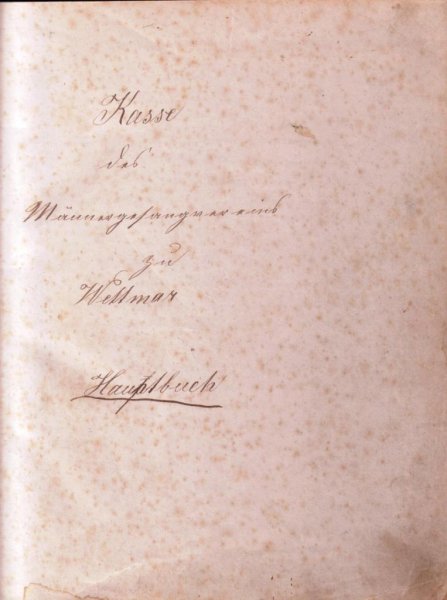 Kasse
des
Männergesangvereins
zu
Wettmar
Hauptbuch